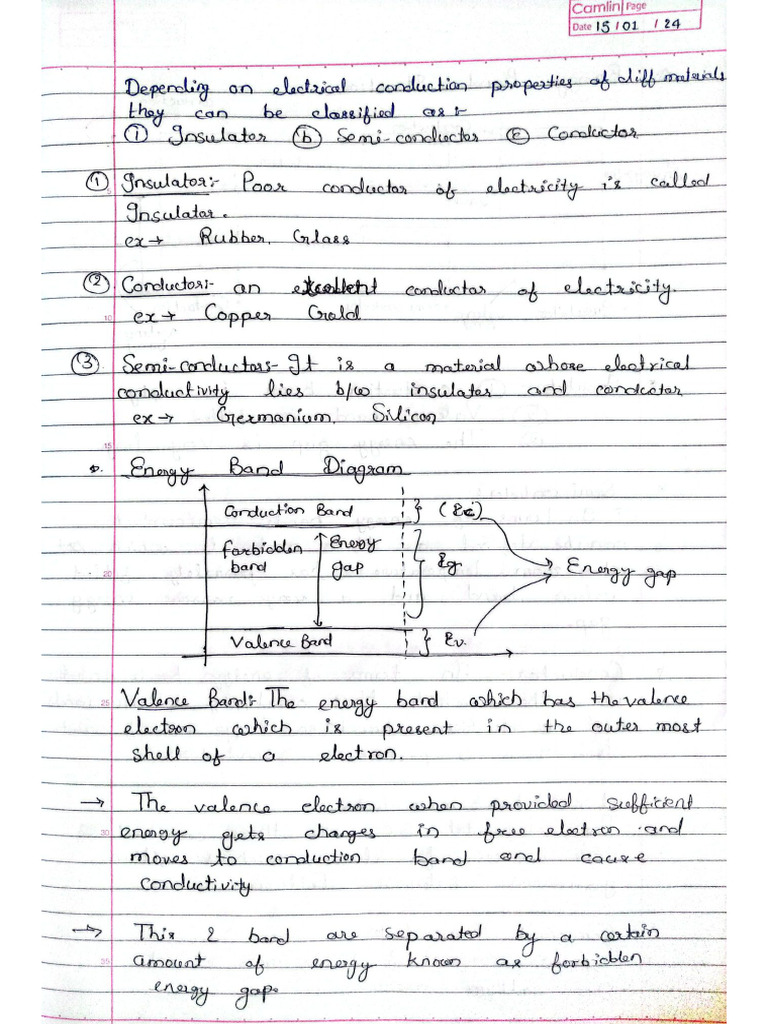 Camlin Page
Date 15 / 01 / 24
Depending on electrical conduction properties of diff materials
they can be classified as :-
① Insulator ⓑ Semi-conductor ⓒ Conductor
① Insulator:- Poor conductor of electricity is called
Insulator.
ex → Rubber, Glass
② Conductor:- an excellent conductor of electricity.
10
ex → Copper Gold
③ Semi-conductors- It is a material whose electrical
conductivity lies b/w insulator and conductor
ex → Germanium, Silicon
15
Energy Band Diagram
Conduction Band } (Ec)
Forbidden band
Energy gap
Eg
20
Energy gap
Valence Band } Ev
25
Valence Band:- The energy band which has the valence
electron which is present in the outer most
shell of a electron.
→ The valence electron when provided sufficient
30
energy gets changes in free electron and
moves to conduction band and cause
conductivity
→ This 2 band are separated by a certain
35
amount of energy known as forbidden
energy gap